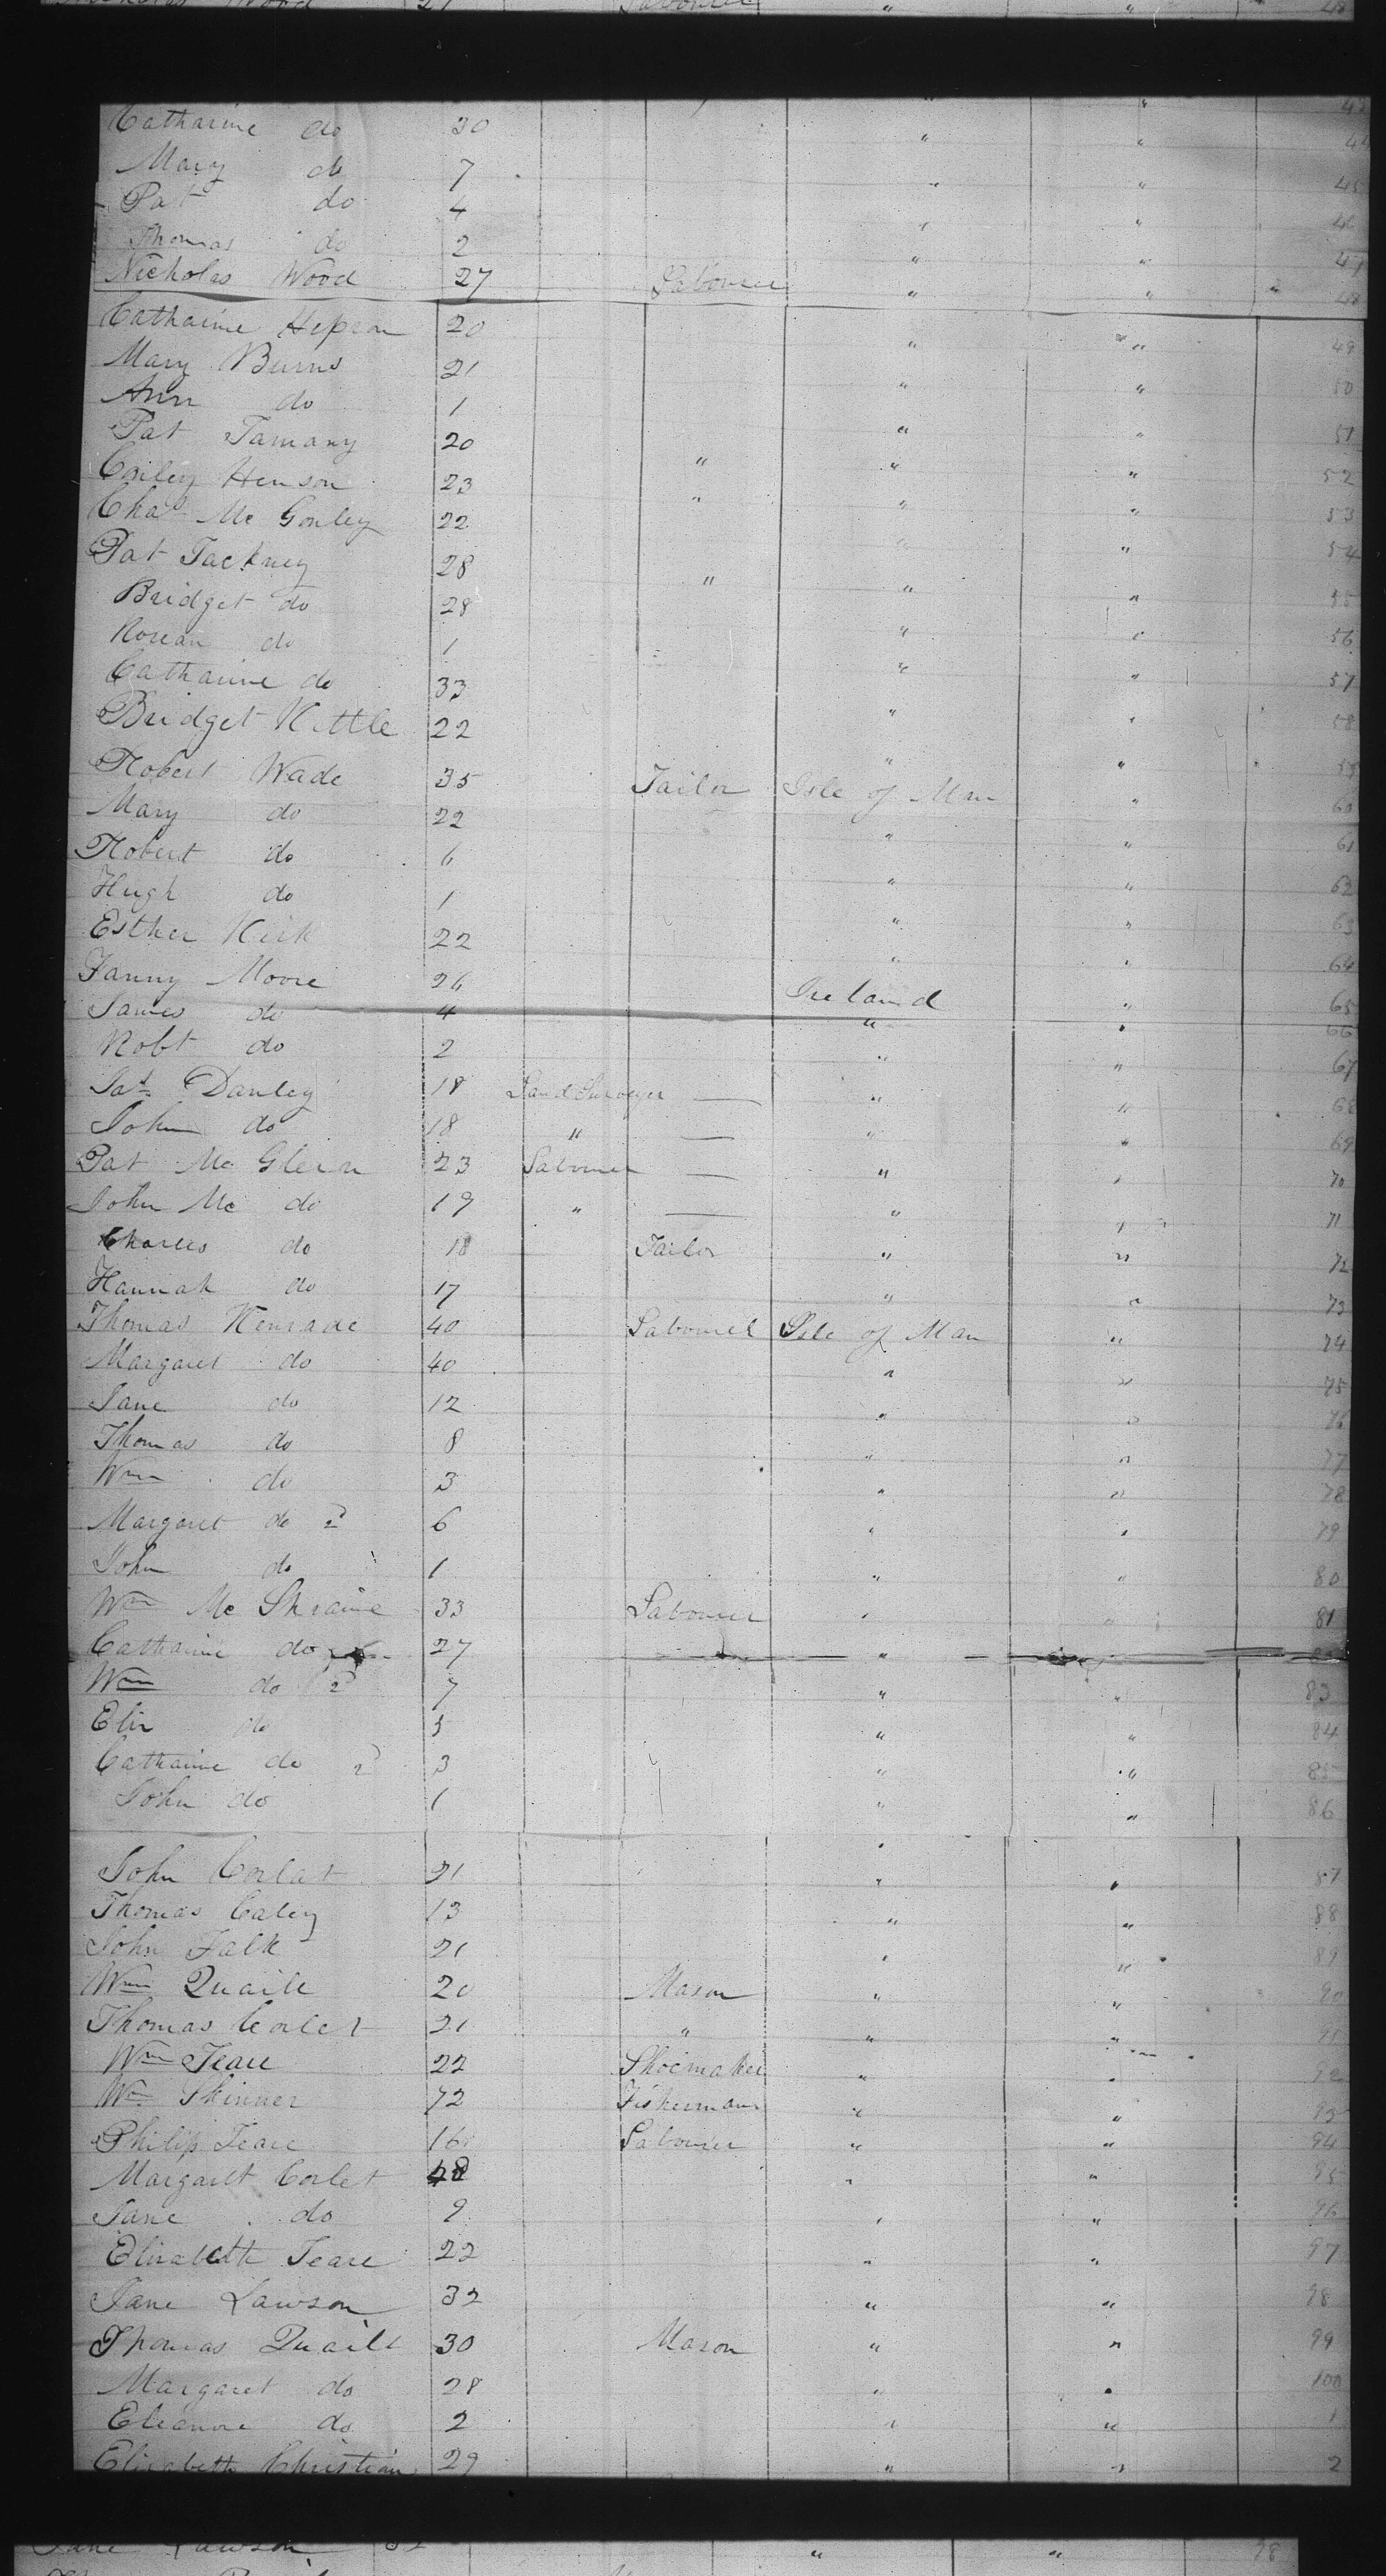 Catharine do 30 " "
Mary do 7 " " 45
Pat do 4 " "
Thomas do 2 " " 47
Nicholas Wood 27 Labourer " " 48
Catharine 20 " " 49
Mary Burns 21 " " 50
Ann do 1 " " 51
Pat Tamany 20 " " " 52
Henson 23 " " " 53
Chas Mc Gonley 22 " " 54
Pat Tackney 28 " " " 55
Bridget do 28 " " 56
Rosean do 1 " " 57
Catharine do 33 " " 58
Bridget Kittle 22 " " 59
Robert Wade 35 Tailor Isle of Man " 60
Mary do 22 " " 61
Robert do 6 " " 62
Hugh do 1 " " 63
Esther Kirk 22 " " 64
Fanny Moore 26 Ireland " 65
James do 4 " " 66
Robt do 2 " " 67
Danley 18 Land Surveyer — " " 68
John do 18 " — " " 69
Pat Mc Glenn 23 Labourer — " " 70
John Mc do 19 " — " " 71
Charles do 18 Tailor " " 72
Hannah do 17 " " 73
Thomas Kenrade 40 Labourer Isle of Man " 74
Margaret do 40 " " 75
Jane do 12 " " 76
Thomas do 8 " " 77
Wm do 3 " " 78
Margaret do 2d 6 " " 79
John do 1 " " 80
Wm Mc Skraine 33 Labourer " " 81
Catharine do 27 "
Wm do 2d 7 " " 83
Eliz do 5 " " 84
Catharine do 2d 3 " " 85
John do 1 " " 86
John Corlat 21 " " 87
Thomas Caley 13 " " 88
John Falk 21 " " 89
Wm Quaile 20 Mason " " 90
Thomas Corlet 21 " " " 91
Wm Teare 22 Shoemaker " " 92
Wm Skinner 72 Fisherman " " 93
Philip Teare 16 Labourer " " 94
Margaret Corlet 48 " " 95
Jane do 9 " " 96
Elizabeth Teare 22 " " 97
Jane Lawson 32 " " 98
Thomas Quaile 30 Mason " " 99
Margaret do 28 " " 100
Eleanor do 2 " " 1
Elizabeth Christian 29 " " 2
Jane Lawson 32 " " 98